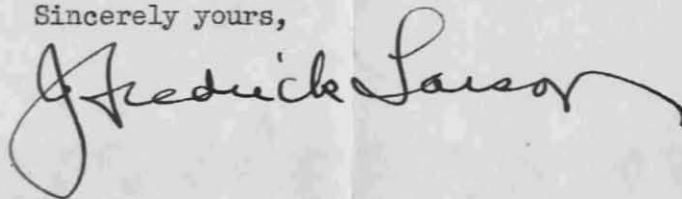 Sincerely yours,
J Fredrick Larson